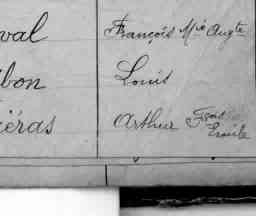 val François Mie Augte
bon Louis
iéras Arthur Fçois
Emile